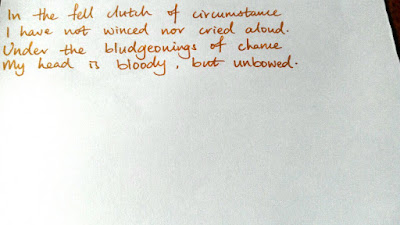 In the fell clutch of circumstance
I have not winced nor cried aloud.
Under the bludgeonings of chance
My head is bloody, but unbowed.